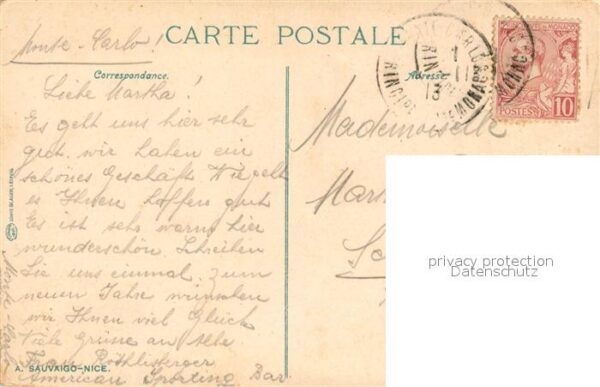 Monte-Carlo!
CARTE POSTALE
Correspondance.
Adresse.
1
11
13
MONACO
POSTES
10
Liebe Martha!
Es geht uns hier sehr
gut. wir haben ein
schönes Geschäft. Wie geht
es Ihnen hoffen gut
Es ist sehr warm hier
wunderschön. Schreiben
Sie uns einmal. zum
neuen Jahre wünschen
wir Ihnen viel Glück
Viele Grüsse an alle
Frau Röthlisberger
American Sporting Bar
Monte Carlo
Mademoiselle
Mar
privacy protection
Datenschutz
A. SAUVAIGO-NICE.